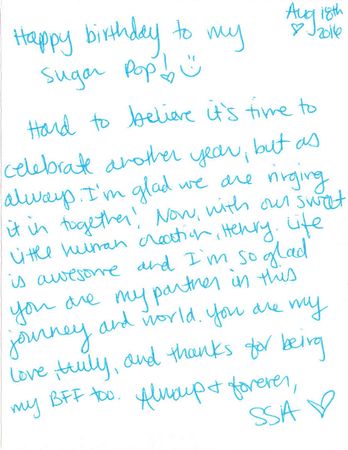 Aug 18th
2016
Happy birthday to my
Sugar Pop!
Hard to believe it's time to
celebrate another year, but as
always. I'm glad we are ringing
it in together! Now, with our sweet
little human creation, Henry. Life
is awesome and I'm so glad
you are my partner in this
journey and world. You are my
love, truly, and thanks for being
my BFF too. Always + forever,
SSA